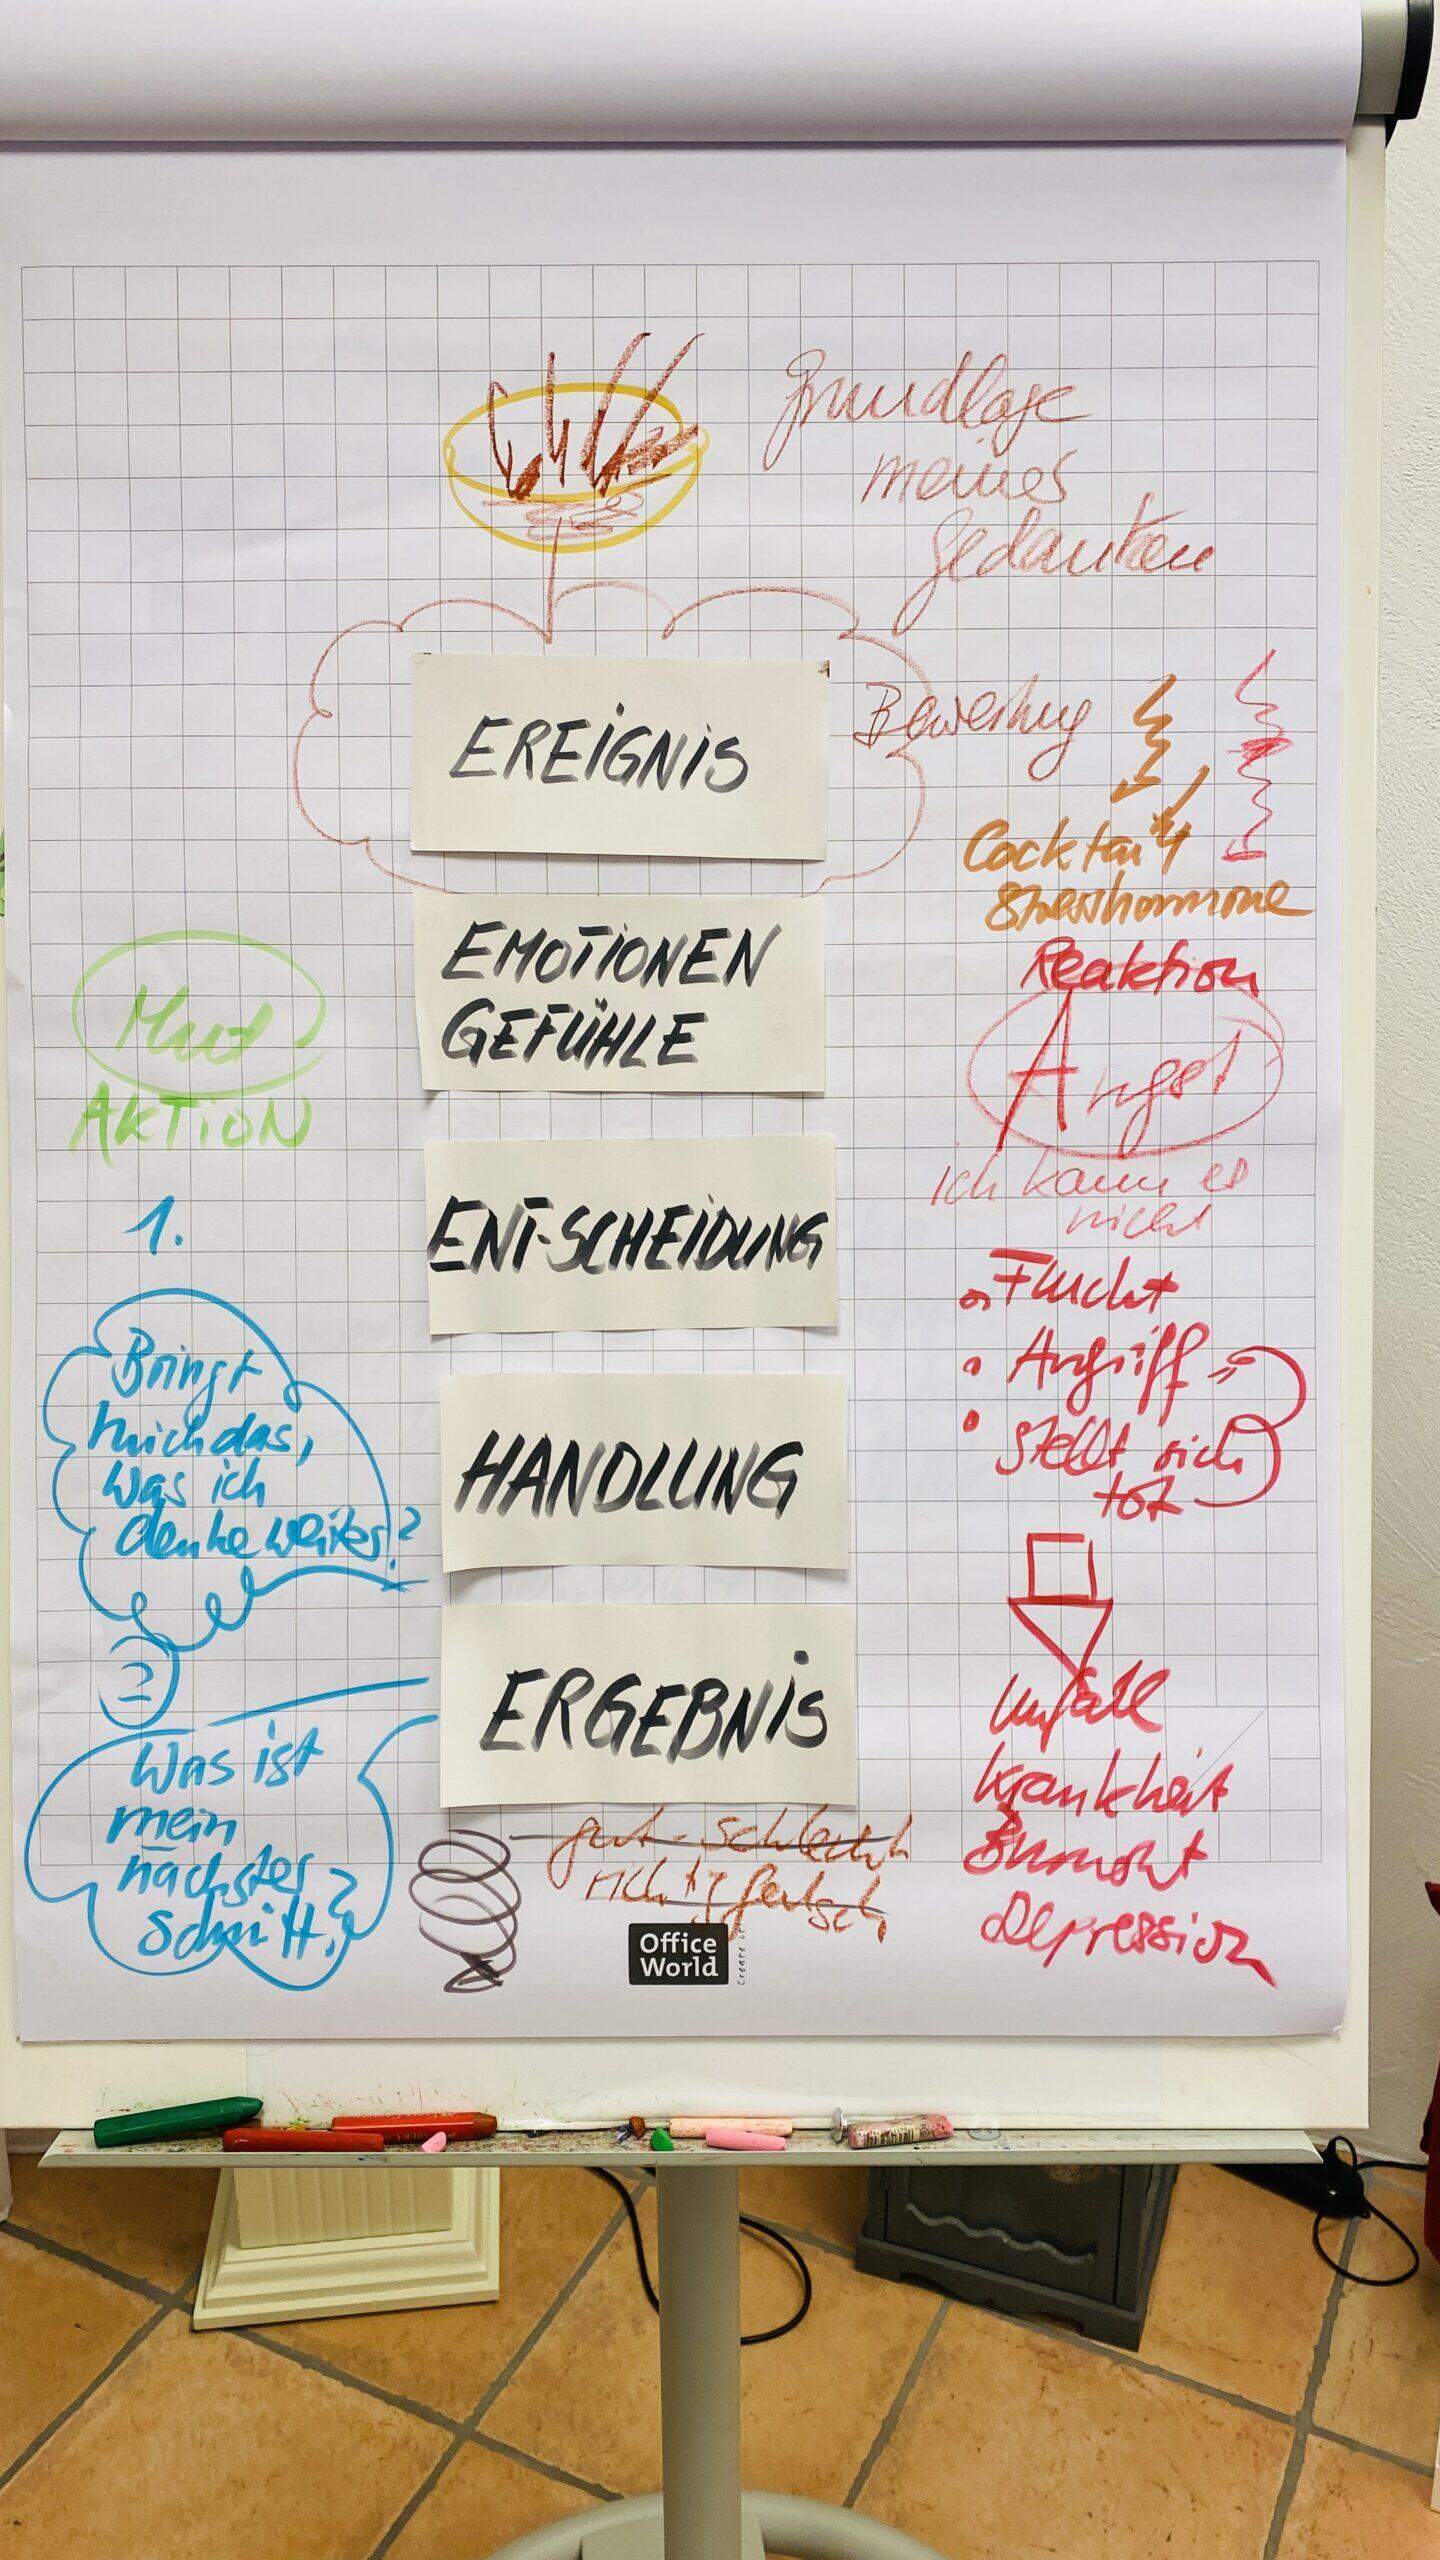 Grundlage
meines
Gedanken
Bewertung
EREiGNiS
Cocktail
Stresshormone
Reaktion
EMOTiONEN
GEFÜHLE
Mut
AKTiON
Angst
ich kann es
nicht
1.
ENT-SCHEiDUNG
Flucht
Angriff
stellt sich
tot
Bringt
mich das,
was ich
denke weiter?
HANDLUNG
2
Was ist
mein
nächster
Schritt?
ERGEBNiS
Unfall
Krankheit
Burnout
Depression
gut - schlecht
richtig falsch
Office
World
Create it